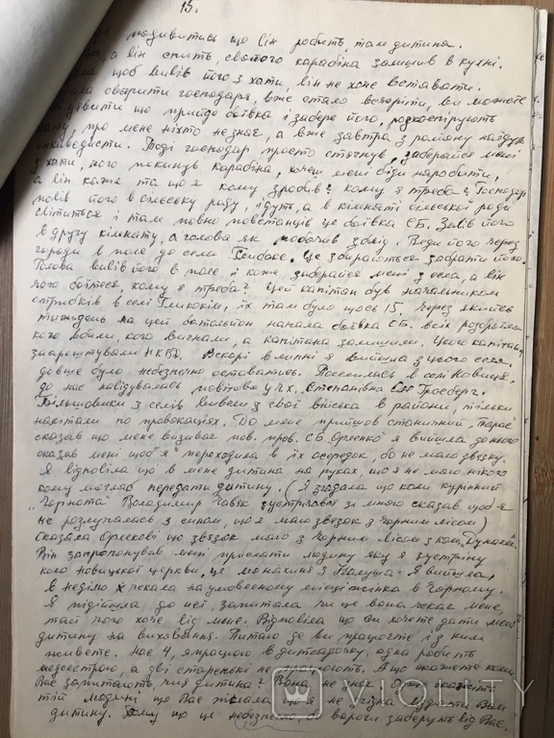 15.
подивитись що він робить, там дитина.
а він спить, святого карабіна залишив в кухні.
щоб вивів його з хати, він не хоче вставати.
сварити господаря, вже стало світати, ви можете
що прийде боївка і забере його, розконспірують
хату, про мене ніхто не знає, а вже завтра з району наїдуть
енкаведисти. Тоді господар просто стягнув, забирайся мені
з хати, чого покинув карабіна, хочеш мені біди наробити,
а він каже та що я кому зробив? кому я треба? Господар
повів його в сільську раду, ідут, а в кімнаті сільської ради
світиться і там повно повстанців це боївка СБ. Завів його
в другу кімнату, а голова як побачив збоїв. Веди його через
городи в поле до села. Це збираються забрати його.
Голова вивів його в поле і каже, забирайся мені з села, а він
чого боїтеся, кому я треба? Цей капітан був начальником
стрибків в селі, їх там було щось 15. Через якийсь
тиждень на цей батальйон напала боївка СБ. всіх роззброїли
кого вбили, кого вигнали, а капітана залишили. Цього капітана
заарештували НКВД. Вскорі в липні я вийшла з цього села.
довше було небезпечно оставатись. Поселилась в селі Новиця.
до нас навідувалась повітова УЧХ. Степанівна
Більшовики з селів вивели з свої війська в райони, тільки
наїздами по провокаціях. До мене прийшов станичний „Тарас"
сказав що мене визиває пов. пров. СБ. Орленко я вийшла до нього
сказав мені щоб я переходила в їх осередок, бо не маю звязку.
Я відповіла що в мене дитина на руках, що я не маю нікого
кому могла б передати дитину. (Я згадала що коли курінний
„Чорнота" Володимир Гавяк зустрічався зі мною сказав щоб я
не розлучалась з сином, що я маю звязок з Чорним лісом)
Сказала Орлкові що звязок маю з Чорним лісом з ком.
Він запропонував мені прислати людину яку я зустріну
коло новицької церкви, це монахині з Калуша. Я вийшла,
в неділю чекала на умовленому місці жінка в Чорному.
Я підійшла до неї, запитала чи це вона чекає мене,
та чого хоче від мене. Відповіла що ви хочете дати мені
дитину на виховання. Питаю де ви працюєте і з ким
живете. Нас 4, я працюю в дитсадочку, одна робить
медсестрою, а дві старенькі не працюють. А що скажете коли
Вас запитають, чия дитина? Вона не знає.
тій людині що Вас післала, що я не згідна віддати Вам
дитину. Тому що це небезпечно бо вороги заберуть від Вас.
VIOLITY